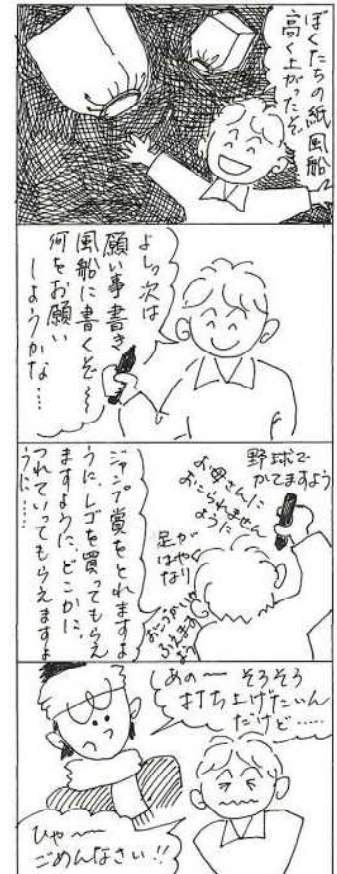 ぼくたちの紙風船
高く上がったぞ
よしっ次は
願い事書き
風船に書くぞ〜
何をお願い
しようかな…
野球で
かてますよう
お母さんに
おこられません
ように
足が
はやく
なり
おこづかいが
ふえますよう
ジャンプ賞をとれますよ
うに、レゴを買ってもらえ
ますように、どこかに、
つれていってもらえますよ
うに……
あの〜そろそろ
打ち上げたいん
だけど……
ひゃ〜
ごめんなさい!!